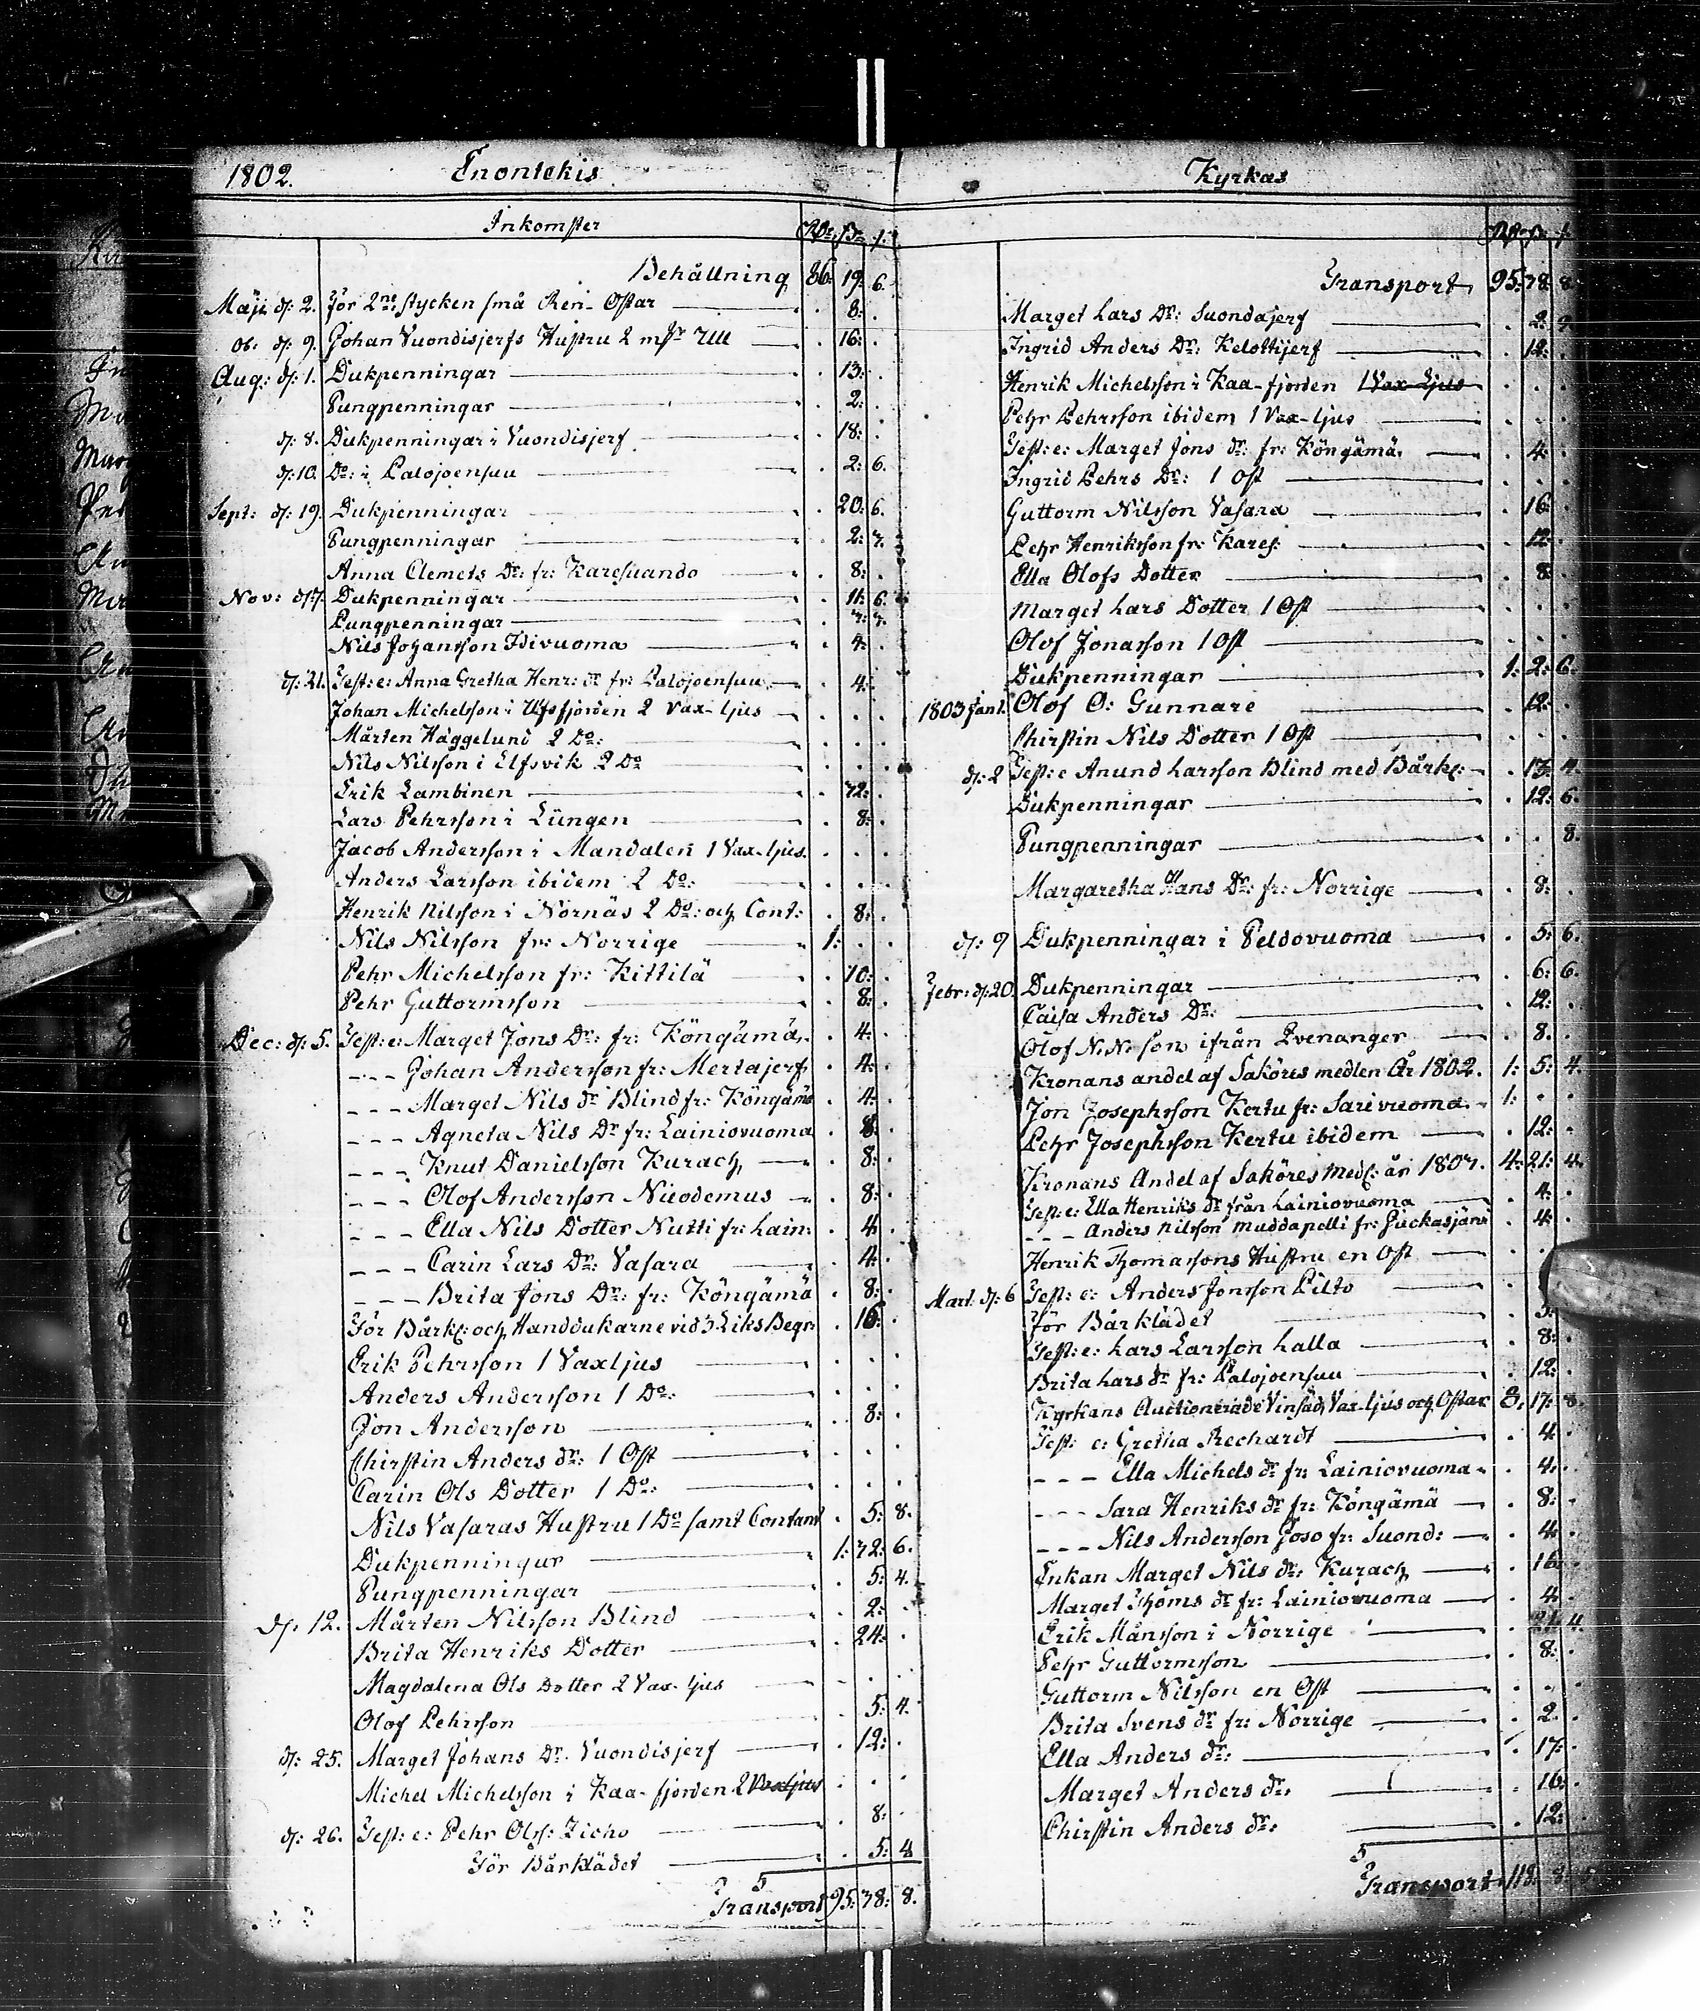 1802. Enontekis
Inkomster Rdr ſz r:
Behållning 86: 19: 6.
Maji d: 2. För 2ne stycken små Ren-Ostar . 8: .
d: 9. Johan Vuondisjerfs Hustru 2 mkr Ull . 16: .
Aug: d: 1. Dukpenningar . 13: .
Pungpenningar . 2: .
d: 8. Dukpenningar i Vuondisjerf . 18: .
d: 10. Do: i Palojoensuu . 2: 6.
Sept: d: 19. Dukpenningar . 20: 6.
Pungpenningar . 2:
Anna Clemets Dr: fr: Karesuando . 8: .
Nov: d: 7. Dukpenningar . 11: 6.
Pungpenningar
Nils Johansson Idivuoma . 4: .
d: 21. Test: e: Anna Gretha Henr: dr fr: Palojoensuu . 4: .
Johan Michelsson i Ulfsfjorden 2 Vax-ljus . . .
Mårten Häggelund 2 Do: . . .
Nils Nilsson i Elfsvik 2 Do . . .
Erik Lambinen
Lars Pehrsson i Lüngen . 8: .
Jacob Andersson i Mandalen 1 Vax-ljus. . . .
Anders Larsson ibidem 2 Do: . . .
Henrik Nilsson i Nornäs 2 Do: och Cont: . 8: .
Nils Nilsson fr: Norrige 1: . .
Pehr Michelsson fr: Kittilä . 10: .
Pehr Guttormsson . 8: .
Dec: d: 5. Test: e: Marget Jons Dr: fr: Köngämä . 4: .
- - - Johan Andersson fr: Mertajerf . 4: .
- - - Marget Nils dr Blind fr: Köngämä . 4: .
- - - Agneta Nils Dr fr: Lainiovuoma . 8: .
- - - Knut Danielsson Kurach . 8: .
- - - Olof Andersson Nicodemus . 8: .
- - - Ella Nils Dotter Nutti fr: Lain: . 4: .
- - - Carin Lars Dr: Vasara . 4: .
- - - Brita Jons Dr: fr: Köngämä . 8: .
För Bårkl: och Handdukarne vid 3 Liks Begr: . 16: .
Erik Pehrsson 1 Vaxljus . . .
Anders Andersson 1 Do: . . .
Jon Andersson . 8: .
Chirstin Anders dr: 1 Ost . . .
Carin Ols Dotter 1 Do: . . .
Nils Vasaras Hustru 1 Do samt Contant . 5: 8.
Dukpenningar 1: 6.
Pungpenningar . 5: 4.
d: 12. Mårten Nilsson Blind . 2: .
Brita Henriks Dotter . 24: .
Magdalena Ols Dotter 2 Vax-ljus . . .
Olof Pehrsson . 5: 4.
d: 25. Marget Johans Dr. Vuondisjerf . 12: .
Michel Michelsson i Kaa-fjorden 2 Vaxljus . . .
d: 26. Test: e: Pehr Olss: . 8: .
För Bårklädet . 5: 4
Transport 95: 38: 8.
Kyrkas
Transport 95: 38: 8.
Marget Lars Dr: Suondajerf . 2:
Ingrid Anders Dr: Kelottijerf . 12: .
Henrik Michelsson i Kaa-fjorden 1 Vax-Ljus . . .
Pehr Pehrsson ibidem 1 Vax-ljus . . .
Test: e: Marget Jons dr: fr: Köngämä . 4: .
Ingrid Pehrs Dr: 1 Ost . . .
Guttorm Nilsson Vasara . 16: .
Pehr Henriksson fr: Kares: . 12: .
Ella Olofs Dotter . 8: .
Marget Lars Dotter 1 Ost . . .
Olof Jonasson 1 Ost . . .
Dukpenningar 1: 2: 6.
1803 Jan 1. Olof O: Gunnare . 12: .
Chirstin Nils Dotter 1 Ost . . .
d: 2 Test: e Anund Larsson Blind med Bårkl: . 13: 4.
Dukpenningar . 12: 6.
Pungpenningar . . 8.
Margaretha Hans Dr: fr: Norrige . 8: .
d: 9 Dukpenningar i Peldovuoma . 5: 6.
Febr: d: 20. Dukpenningar . 6: 6.
Caisa Anders Dr: . 12: .
Olof N. N: son ifrån Qvenanger . 8: .
Kronans andel af Saköres medlen År 1802. 1: 5: 4.
Jon Josephsson Kertu fr: Sarivuoma 1: . .
Pehr Josephsson Kertu ibidem . 12: .
Kronans Andel af Saköres Medl: år 4: 21: 4.
Test: e: Ella Henriks dr från Lainiovuoma . 4: .
- - - Anders Nilsson Muddapelli fr: Juckasjärvi . 4: .
Henrik Thomassons Hustru en Ost . .
Mart: d: 6 Test: e: Anders Jonsson Pilto .
För Bårklädet
Test: e: Lars Larsson Lalla . 8: .
Brita Lars dr fr: Palojoensuu . 12: .
Kyrkans Auctionerade Vinsäd, Vax-ljus och Ostar 8: 17: 8.
Test: e: Gretha Rechardt . 4: .
- - - Ella Michels dr fr: Lainiovuoma . 4: .
- - - Sara Henriks dr fr: Köngämä . 8: .
- - - Nils Andersson Joso fr: Suond: . 4: .
Enkan Marget Nils dr: Kurach . 16: .
Marget Thoms dr fr: Lainiovuoma . 4: .
Erik Månsson i Norrige . 4.
Pehr Guttormsson . 8: .
Guttorm Nilsson en Ost . . .
Brita Svens dr fr: Norrige . 2. .
Ella Anders dr: . 17: .
Marget Anders dr: . 16: .
Chirstin Anders dr: . 12: .
Transport 118: 8: